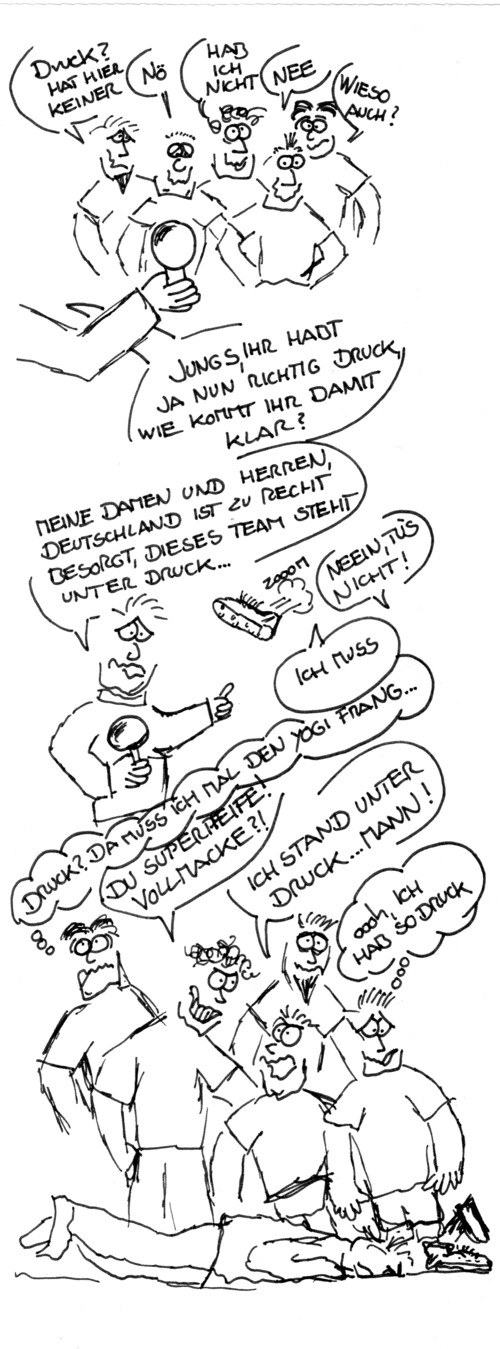 DRUCK?
HAT HIER
KEINER
NÖ
HAB
ICH
NICHT
NEE
WIESO
AUCH?
JUNGS, IHR HABT
JA NUN RICHTIG DRUCK,
WIE KOMMT IHR DAMIT
KLAR?
MEINE DAMEN UND HERREN,
DEUTSCHLAND IST ZU RECHT
BESORGT, DIESES TEAM STEHT
UNTER DRUCK...
ZOOOM
NEEIN, TU'S
NICHT!
ICH MUSS
DRUCK? DA MUSS ICH MAL DEN YOGI FRANG...
DU SUPERPFEIFE!
VOLLMACKE?!
ICH STAND UNTER
DRUCK...MANN!
OOOH, ICH
HAB SO DRUCK